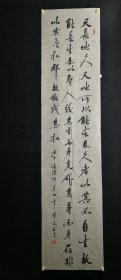 天長地久天地所以能長且久者以其不自生故
能長生是以聖人後其身而身先外其身而身存非
以其無私邪故能成其私